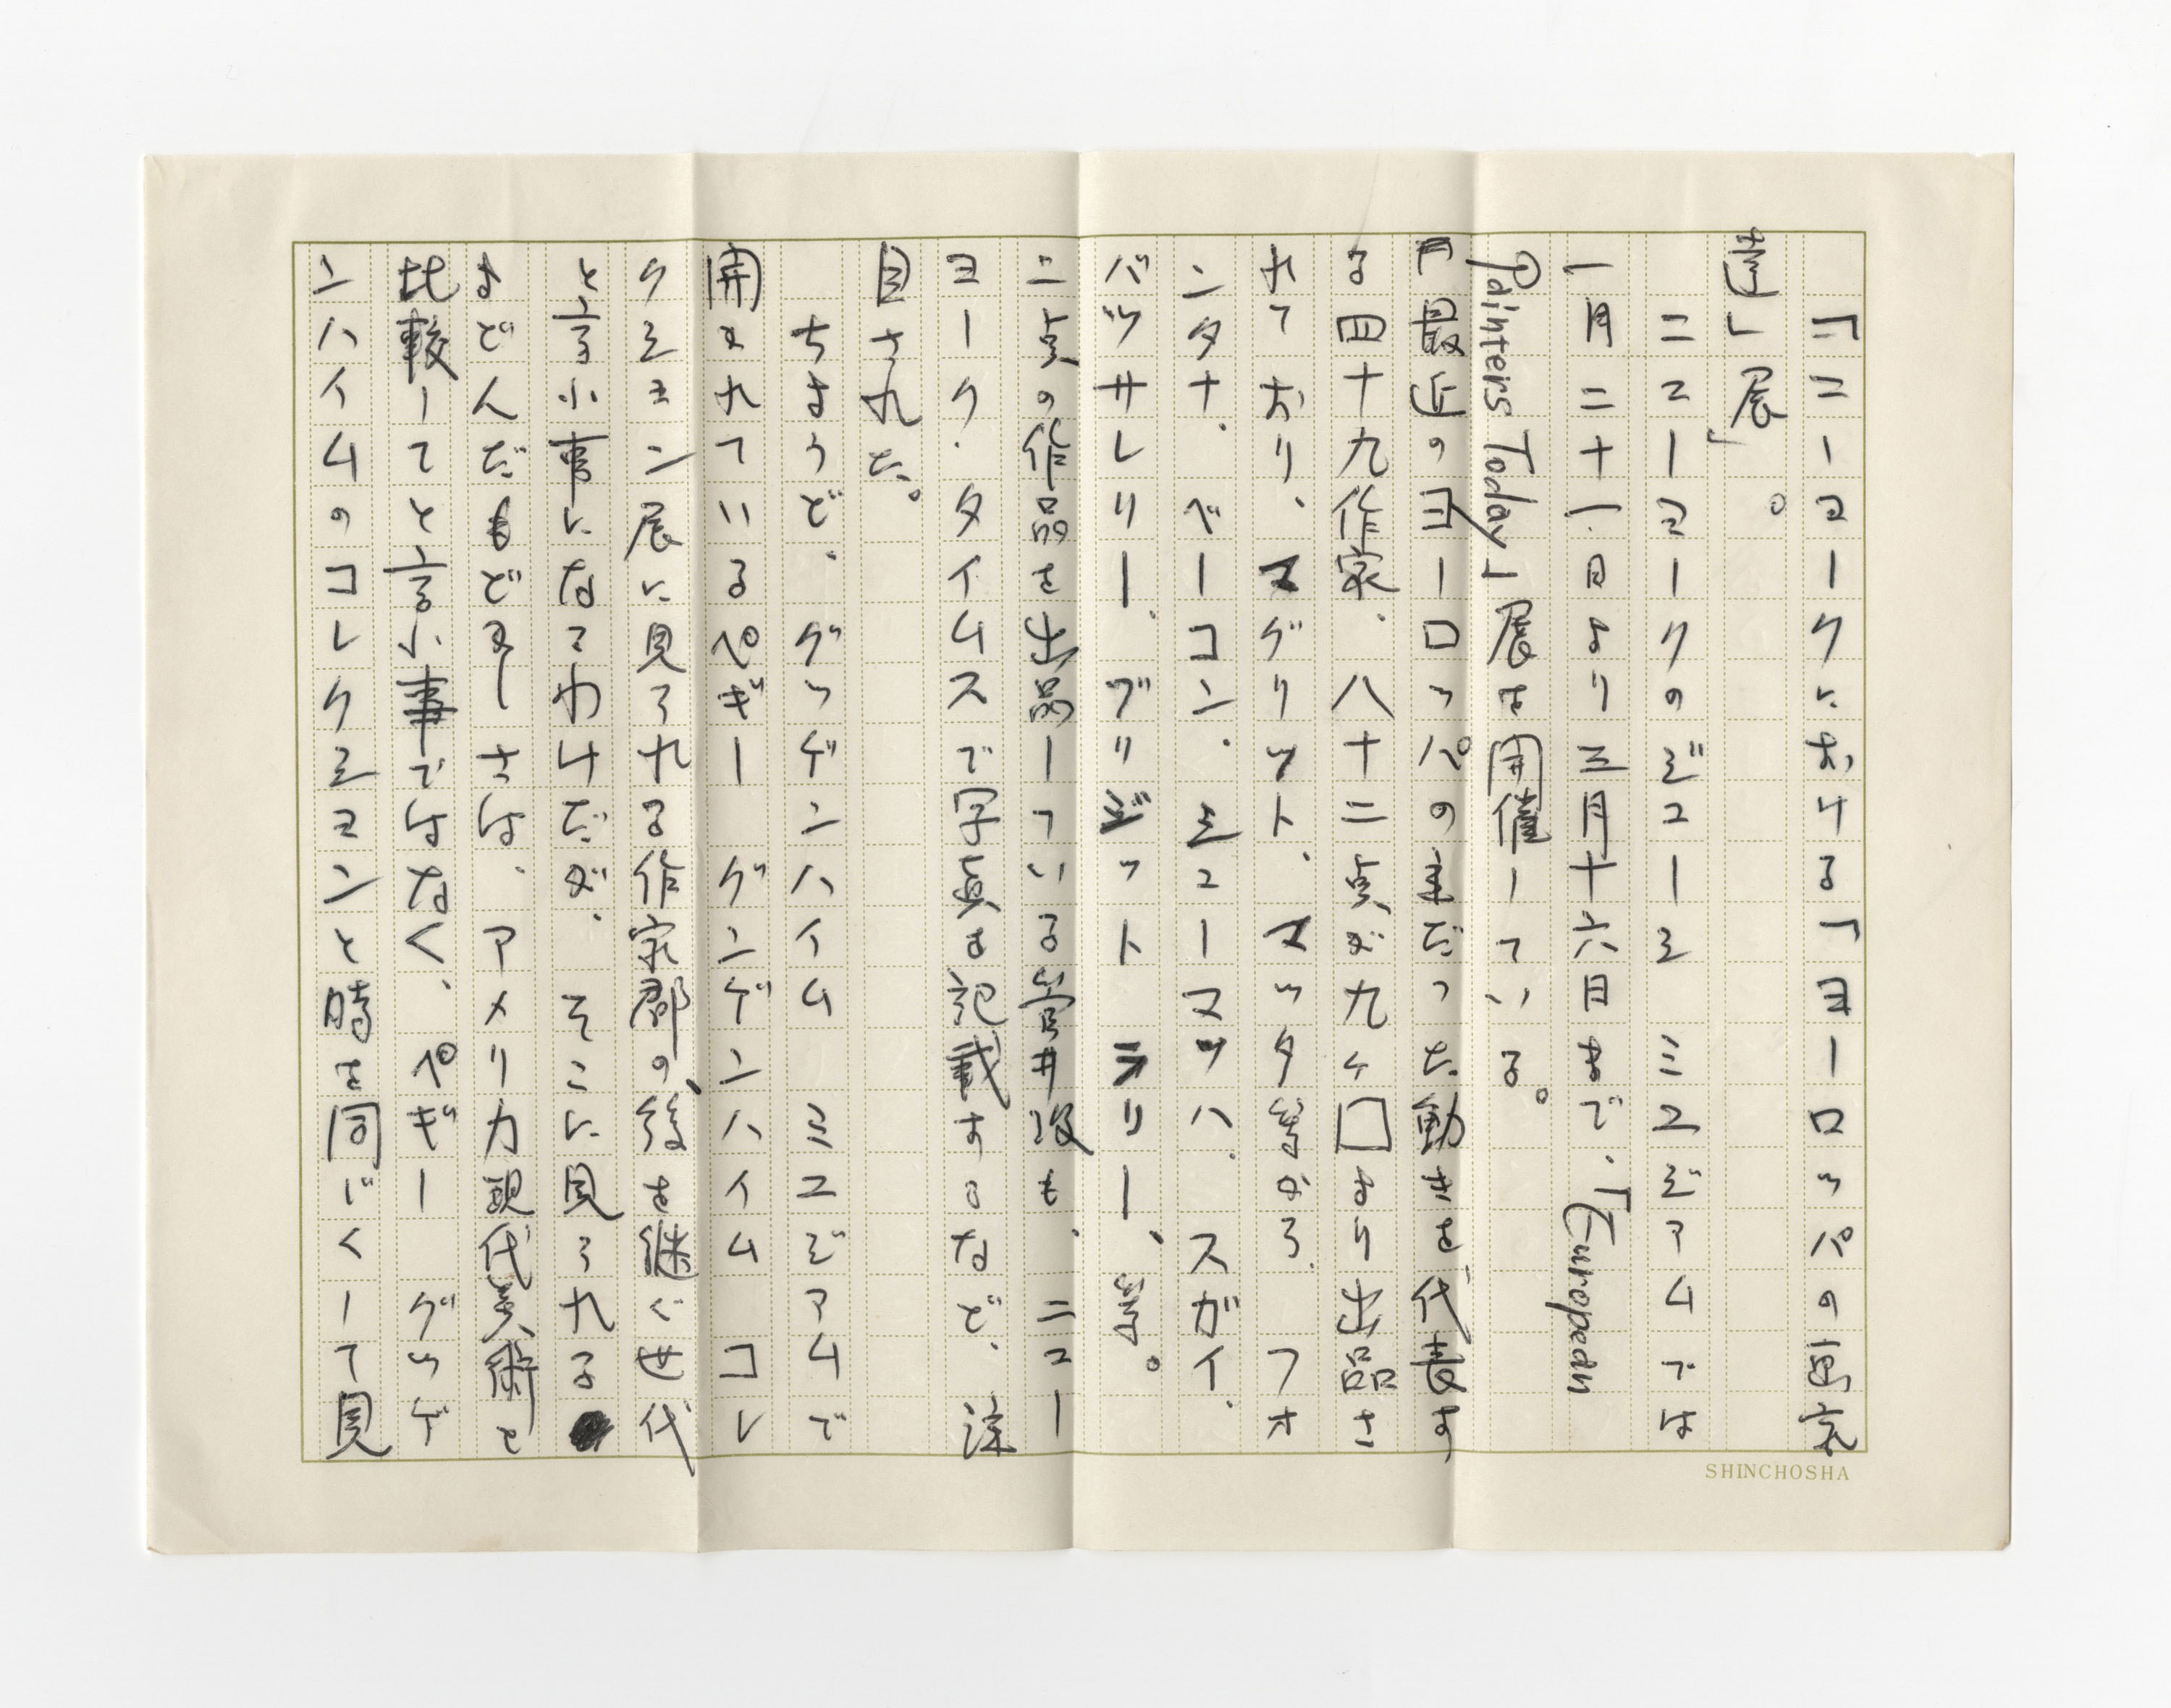 「ニューヨークにおける「ヨーロッパの画家
達」展」。
ニューヨークのジューシ ミュジアムでは
一月二十一日より三月十六日まで、「European
Painters Today」展を開催している。
最近のヨーロッパの主だった動きを代表す
る四十九作家、八十二点が九ヶ国より出品さ
れており、マグリット、マッタ等から、フォ
ンタナ、ベーコン、ミューヌッハ、スガイ、
バッサレリー、ブリジット ラリー、等。
二点の作品を出品している菅井汲も、ニュー
ヨーク・タイムスで写真を記載するなど、注
目された。
ちょうど、グッゲンハイム ミュジアムで
開かれているペギー グンゲンハイム コレ
クション展に見られる作家郡の、後を継ぐ世代
と言う事になるわけだが、そこに見られる
まどんだもどかしさは、アメリカ現代美術と
比較してと言う事ではなく、ペギー グッゲ
ンハイムのコレクションと時を同じくして見
SHINCHOSHA